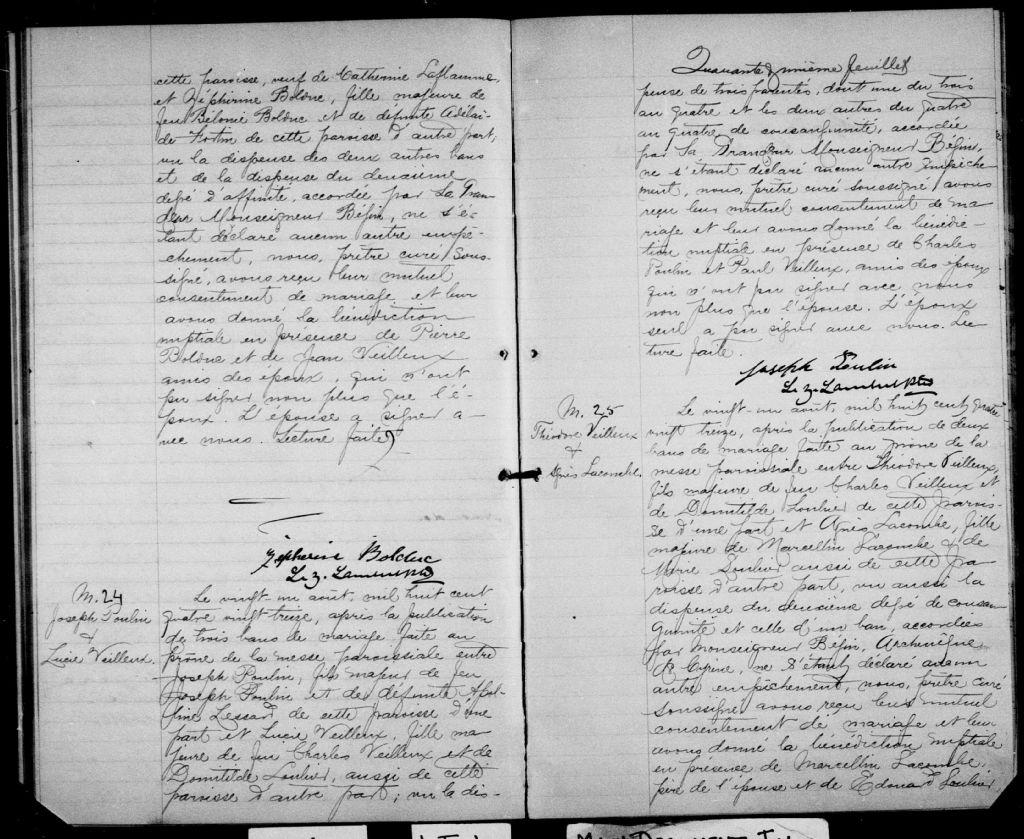 cette paroisse, veuf de Catherine Laflamme,
et Zéphirine Bolduc, fille majeure de
feu Bélonie Bolduc et de défunte Adélai-
de Fortin de cette paroisse d'autre part,
vu la dispense des deux autres bans
et de la dispense du deuxième
degré d'affinité, accordée par Sa Gran-
deur Monseigneur Bégin, ne s'é-
tant déclaré aucun autre empê-
chement, nous, prêtre curé sous-
signé, avons reçu leur mutuel
consentement de mariage et leur
avons donné la bénédiction
nuptiale en présence de Pierre
Bolduc et de Jean Veilleux
amis des époux, qui n'ont
pu signer non plus que l'é-
poux. L'épouse a signer a-
vec nous. Lecture faite
Zépherine Bolduc
M. 24
Joseph Poulin
&
Lucie Veilleux.
Le vingt-un août, mil huit cent
quatre vingt treize, après la publication
de trois bans de mariage faite au
prône de la messe paroissiale entre
Joseph Poulin, fils majeur de feu
Joseph Poulin et de défunte
Lessard de cette paroisse d'une
part et Lucie Veilleux, fille ma
jeure de feu Charles Veilleux et de
Domitilde Loubier, aussi de cette
paroisse d'autre part; vu la dis-
Quarante & unième feuillet
pense de trois parentés, dont une du trois
au quatre et les deux autres du quatre
au quatre de consanguinité, accordée
par Sa Grandeur Monseigneur Bégin,
ne s'étant déclaré aucun autre empêche
ment, nous, prêtre curé soussigné avons
reçu leur mutuel consentement de ma
riage et leur avons donné la bénédic-
tion nuptiale en présence de Charles
Poulin et Paul Veilleux, amis des époux
qui n'ont pu signer avec nous
non plus que l'épouse. L'époux
seul a pu signer avec nous. Lec
ture faite.
Joseph Poulin
M. 25
Théodore Veilleux
&
Agnès Lacombe.
Le vingt-un août, mil huit cent quatre
vingt treize, après la publication de deux
bans de mariage faite au prône de la
messe paroissiale entre Théodore Veilleux,
fils majeure de feu Charles Veilleux et
de Domitilde Loubier de cette parois-
se d'une part et Agnès Lacombe, fille
majeure de Marcellin Lacombe & de
Marie Loubier aussi de cette pa
roisse d'autre part, vu aussi la
dispense du deuxième degré de consan
guinité et celle d'un ban, accordées
par Monseigneur Bégin, Archevêque
de Cyrène, ne s'étant déclaré aucun
autre empêchement, nous, prêtre curé
soussigné avons reçu leur mutuel
consentement de mariage et leur
avons donné la bénédiction nuptiale
en présence de Marcellin Lacombe,
père de l'épouse et de Edouard Loubier